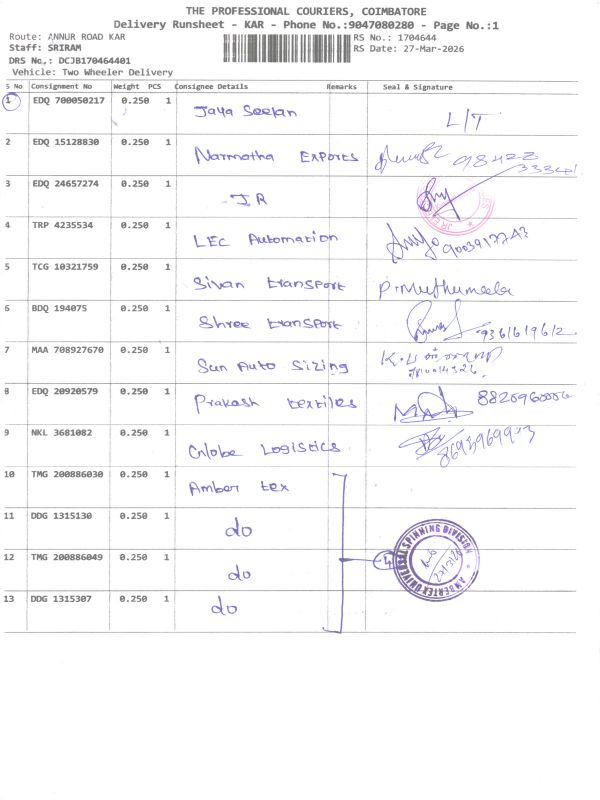 THE PROFESSIONAL COURIERS, COIMBATORE
Delivery Runsheet - KAR - Phone No.:9047080280 - Page No.:1
Route: ANNUR ROAD KAR
RS No.: 1704644
Staff: SRIRAM
RS Date: 27-Mar-2026
DRS No.: DCJB170464401
Vehicle: Two Wheeler Delivery
S No Consignment No Weight PCS Consignee Details Remarks Seal & Signature
1 EDQ 700050217 0.250 1 Jaya Seelan L/T
2 EDQ 15128830 0.250 1 Narmatha Exports 98422 33341
3 EDQ 24657274 0.250 1 JR
4 TRP 4235534 0.250 1 LEC Automation 9003917743
5 TCG 10321759 0.250 1 Sivan transport P. Muthumeela
6 BDQ 194075 0.250 1 Shree transport 9361619612
7 MAA 708927670 0.250 1 Sun Auto Sizing
8 EDQ 20920579 0.250 1 Prakash textiles
9 NKL 3681082 0.250 1 Globe Logistics
10 TMG 200886030 0.250 1 Amber tex
11 DDG 1315130 0.250 1 do
12 TMG 200886049 0.250 1 do 4
AMBERTEX UNIVERSAL SPINNING DIVISION
13 DDG 1315307 0.250 1 do